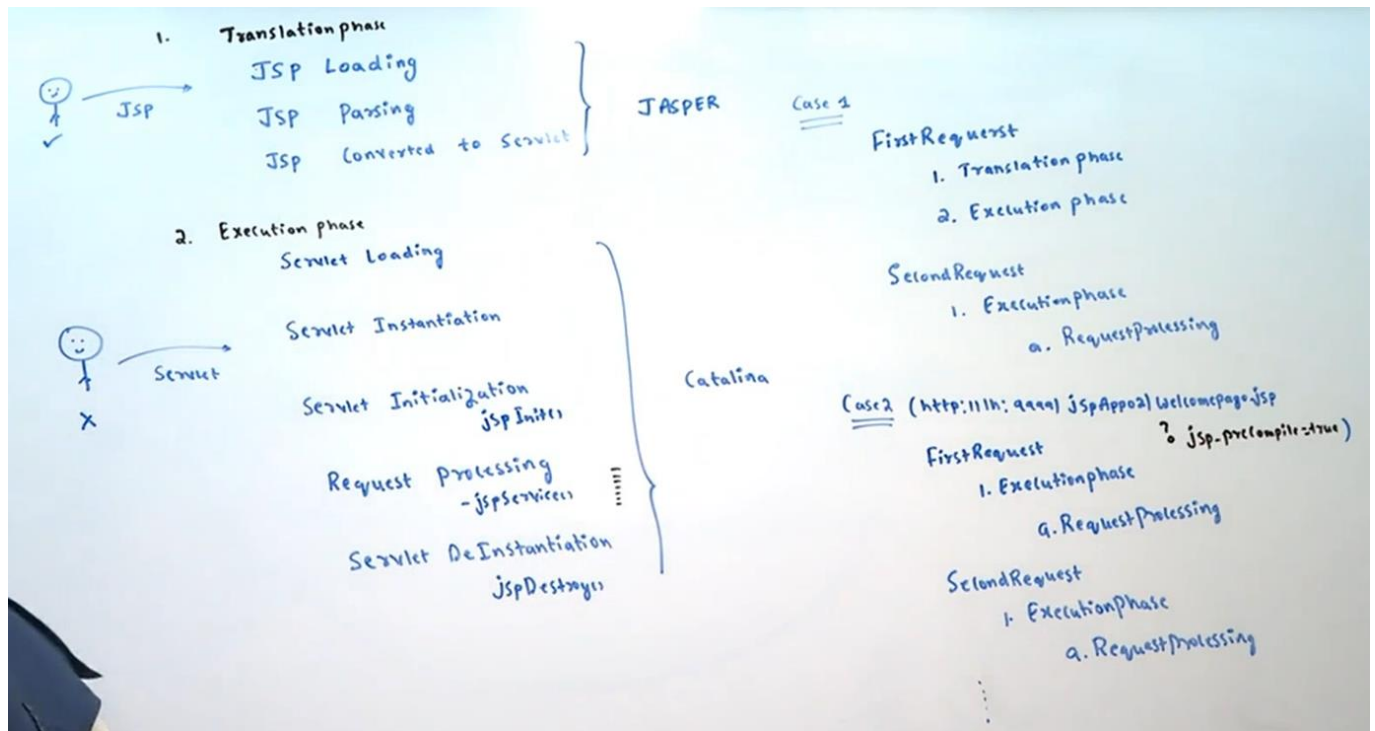 1. Translation phase
JSP Loading
JSP Parsing
JSP Converted to Servlet
JSP
✓
JASPER
2. Execution phase
Servlet Loading
Servlet Instantiation
Servlet Initialization
jspInit()
Request Processing
-jspService()
Servlet DeInstantiation
jspDestroy()
Servlet
x
Catalina
Case 1
FirstRequerst
1. Translation phase
2. Execution phase
SecondRequest
1. Execution phase
a. RequestProcessing
Case2 (http://lh:9999/jspApp02/welcomepage.jsp
? jsp-precompile=true)
FirstRequest
1. Execution phase
a. RequestProcessing
SecondRequest
1. ExecutionPhase
a. RequestProcessing